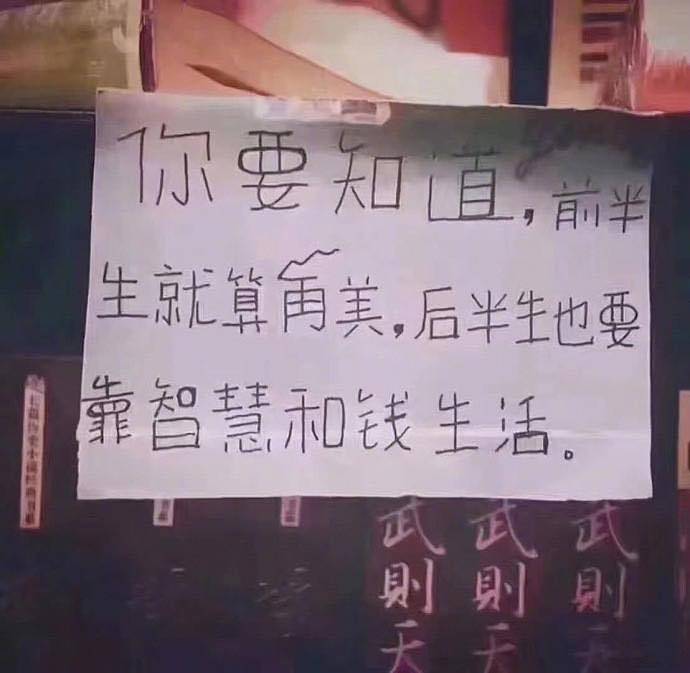 你要知道,前半
生就算再美,后半生也要
靠智慧和钱生活。
武则天
武则天
武则天